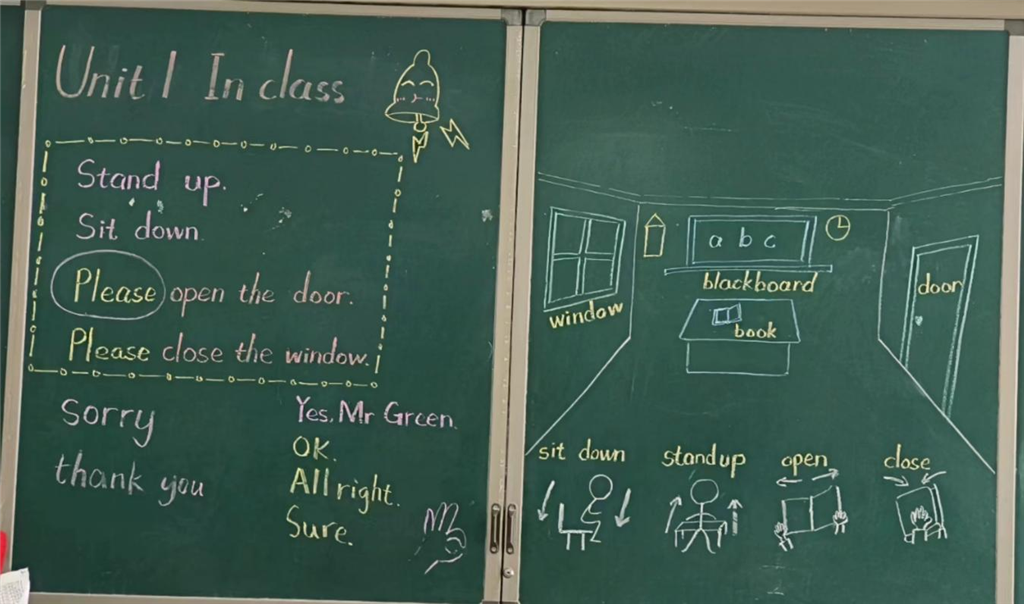 Unit 1 In class
Stand up.
Sit down
Please open the door.
Please close the window.
sorry
thank you
Yes, Mr Green.
OK.
All right.
Sure.
a b c
blackboard
window
book
door
sit down
stand up
open
close